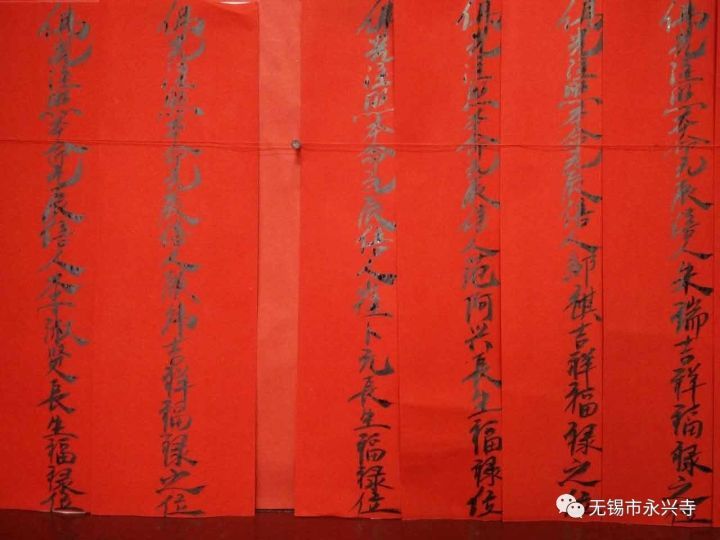 佛光注照本命元辰信人朱瑞吉祥福禄之位
佛光注照本命元辰信人邹祺吉祥福禄之位
佛光注照本命元辰信人范阿兴長生福禄位
佛光注照本命元辰信人崔卜元長生福禄位
佛光注照本命元辰信人吉祥福禄之位
佛光注照本命元辰信人李淑贤長生福禄位
无锡市永兴寺